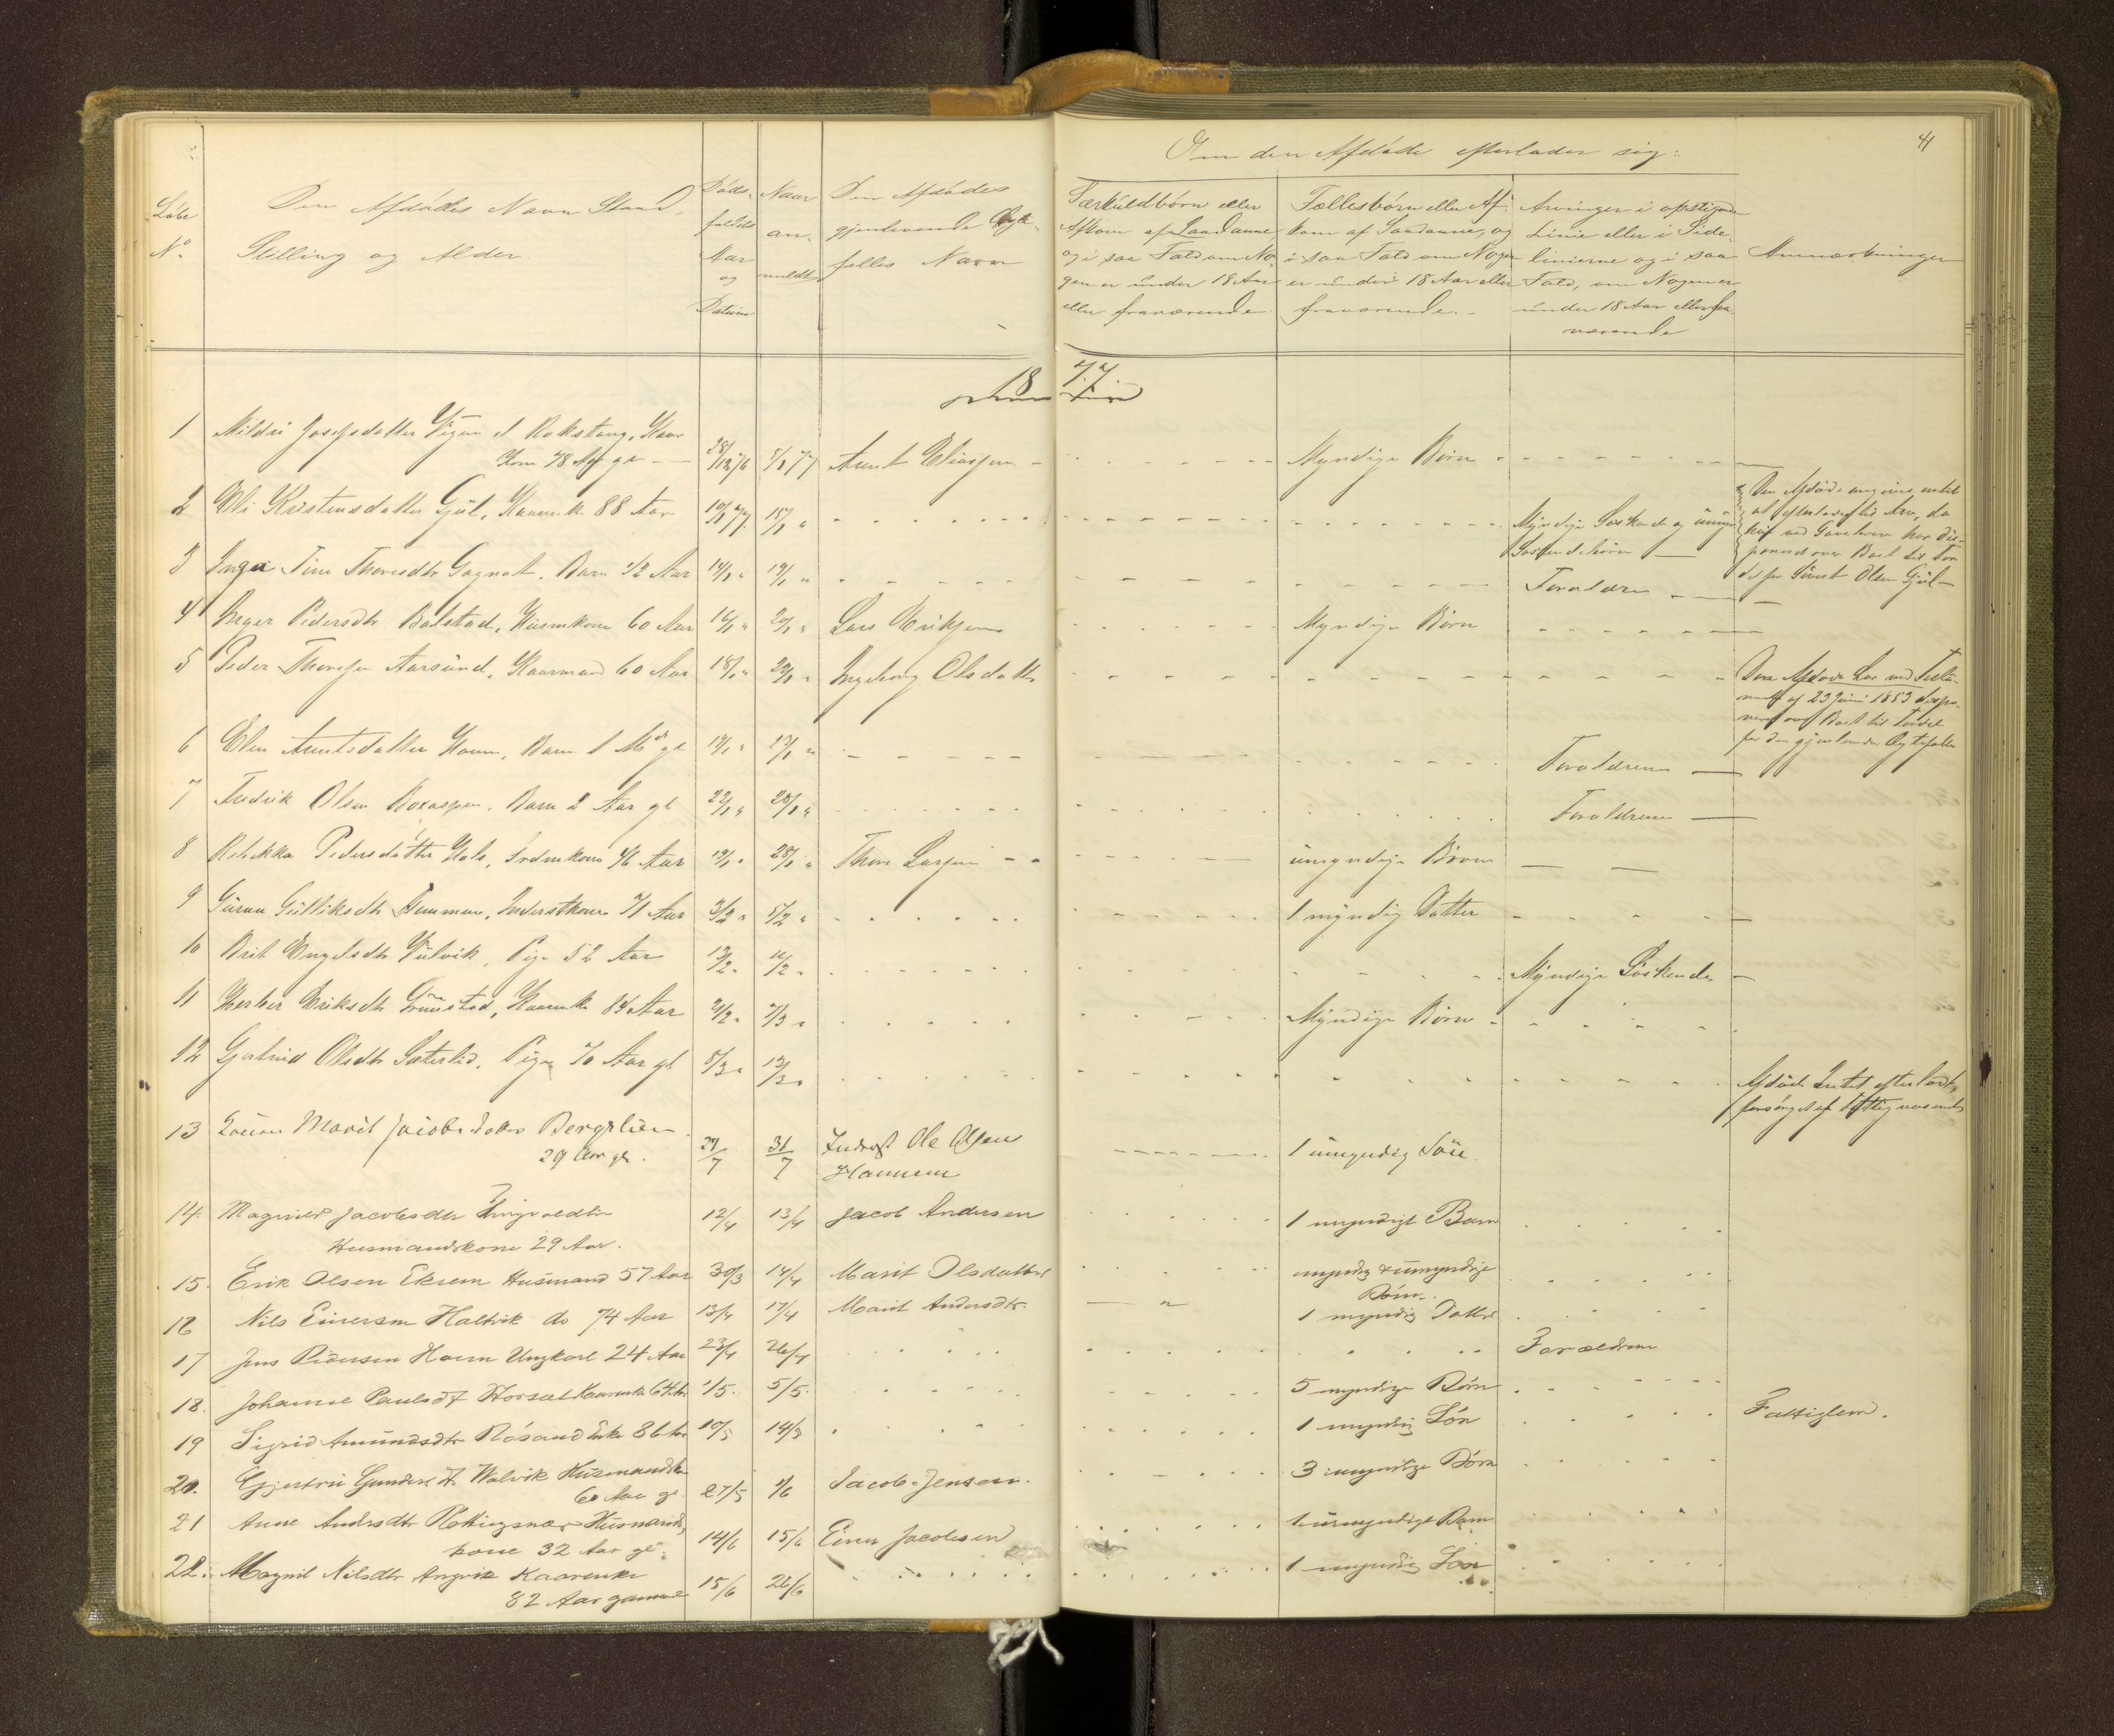 41
Om den Afdøde efterlader sig:
Løbe No.
Den Afdødes Navn Stand, Stilling og Alder
Dødsfaldets Aar og Datum
Naar anmeldt
Den Afdødes gjenlevende Ægtefælles Navn
Særkuldbørn eller Afkom af Saadanne og i saa Fald om Nogen er under 18 Aar eller fraværende
Fællesbørn eller Afkom af Saadanne, og i saa Fald om Nogen er under 18 Aar eller fraværende.
Arvinger i opstigende Linie eller i Sidelinierne og i saa Fald, om Nogen er under 18 Aar eller fraværende
Anmærkninger
1877
1 Mildri Josefsdatter Rokstang, Kaarkone 78 Aar gl 28/12 76 5/1 77 Aunt Eliassen Myndige Børn
2 Eli Kristensdatter Gjül, Kaarenke 88 Aar 10/1 77 15/1 " Myndige Søskende og Søskendebørn
Den Afdøde angives intet at efterlade sig til Arv, da hun ved Gavebrev har disponeret over Boet til Fordel for Olsen Gjül
3 Inga Tine Thoresdtr Gagnat, Barn 1/2 Aar 14/1 " 19/1 " Forældre
4 Inger Pedersdtr Bolstad, Husmkone 60 Aar 16/1 " 20/1 " Lars Eriksen Myndige Børn
5 Peder Thoresen Aarsund, Kaarmand 60 Aar 18/1 " 22/1 " Ingeborg Olsdatter
Den Afdøde har ved Testament af 23 Juni 1853 disponeret over Boet til Fordel for den gjenlevende Ægtefælle
6 Elen Auntsdatter Houm, Barn 1 Md gl 14/1 " 17/1 " Forældrene
7 Fredrik Olsen Boxaspen, Barn 2 Aar gl 22/1 " 25/1 " Forældrene
8 Rebekka Pedersdatter Hals, 46 Aar 19/1 " 28/1 " Thore Larsen umyndige Børn
9 Guru Gulliksdtr Hemmen, Inderstkone 71 Aar 3/2 " 5/2 " 1 myndig Datter
10 Brit Engelsdtr Vulvik, Pige 52 Aar 13/2 " /2 " Myndige Søskende
11 Eriksdtr Grimstad, Kaarenke 84 Aar 21/2 " 7/3 " Myndige Børn
12 Gjertrud Olsdtr Sæterlid, Pige 70 Aar gl 5/3 " 12/3 " Afdøde Intet efterladt forsørget af Fattigvæsenet
13 Marit Jacobsdatter Bergslien 29 Aar gl. 24/7 31/7 Inderst Ole Olsen Hannem 1 umyndig Søn
14. Magnild Jacobsdtr Tingvoldlie Husmandskone 29 Aar. 12/4 13/4 Jacob Andersen 1 umyndigt Barn
15. Erik Olsen Eksem Husmand 57 Aar 30/3 14/4 Marit Olsdatter myndig & umyndige Børn.
16 Nils Einersen Haltvik do 74 Aar 13/4 17/4 Marit Andersdtr. 1 myndig Datter
17 Jens Pedersen Houm Ungkarl 24 Aar 23/4 26/4 Forældrene
18. Johanne Paulsdt Horsæt Kaarenke 64 Aar 1/5. 5/5. 5 myndige Børn
19 Sigrid Amundsdtr Røsand Enke 86 Aar 10/5 14/5 1 myndig Søn Fattiglem.
20. Gjertru Gundersdt. Walvik Husmandsk 60 Aar gl. 27/5 1/6 Jacob Jensen. 3 myndige Børn
21 Anne Andrsdtr Røttingsnæs Husmandskone 32 Aar gl. 14/6 15/6 Einer Jacobsen 1 umyndigt Barn
22. Magnil Nilsdtr Angvik Kaarenke 82 Aar gammel 15/6 26/6 1 myndig Søn